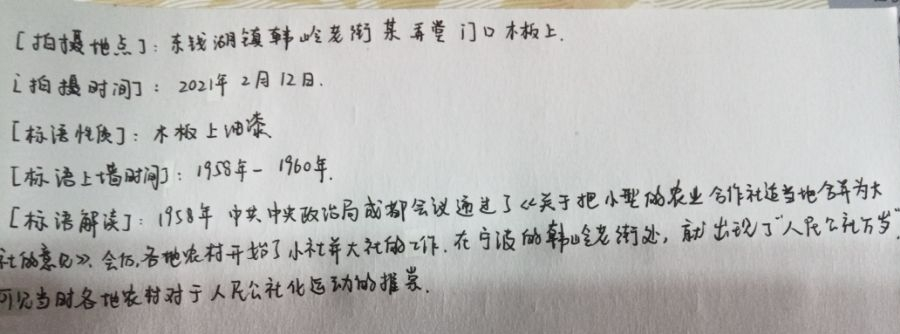 [拍摄地点]：东钱湖镇韩岭老街某弄堂门口木板上.
[拍摄时间]：2021年2月12日.
[标语性质]：木板上油漆
[标语上墙时间]：1958年-1960年.
[标语解读]：1958年中共中央政治局成都会议通过了《关于把小型的农业合作社适当地合并为大
社的意见》.会后,各地农村开始了小社并大社的工作.在宁波的韩岭老街处,就出现了"人民公社万岁"
可见当时各地农村对于人民公社化运动的推崇.